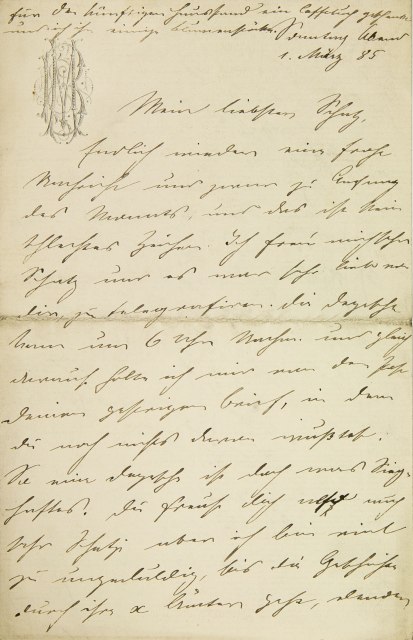 für den künftigen Hausstand ein Caffetuch geschenkt
und ich ihr einige Blumenstöcke.
Sonntag Abend
1. März 85
Mein liebster Schatz,
Endlich wieder eine frohe
Nachricht und zwar zu Anfang
des Monats, und das ist kein
schlechtes Zeichen. Ich freue mich sehr
Schatz und es war sehr lieb von
dir, zu telegrafiren. Die Depesche
kam um 6 Uhr Nachm. und gleich
darauf holte ich mir von der Post
Deinen gestrigen Brief, in dem
du noch nichts davon wußtest.
So eine Depesche ist doch was
haftes. Du freust dich auch
sehr Schatz aber ich bin viel
zu ungeduldig, bis die Geschichte
durch ihre x geht,